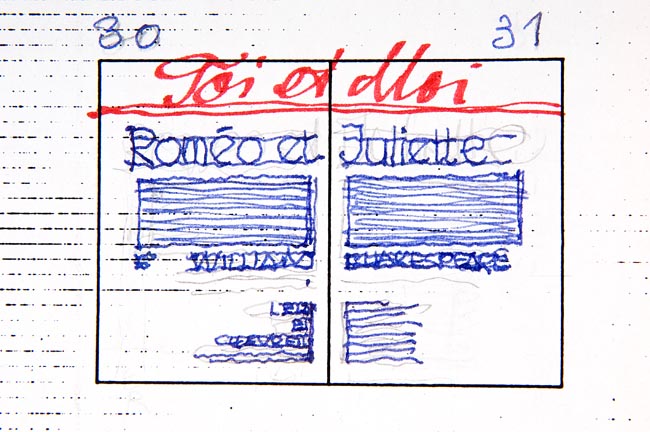 30 31
Toi et Moi
Roméo et Juliette
WILLIAM SHAKESPEARE
ET